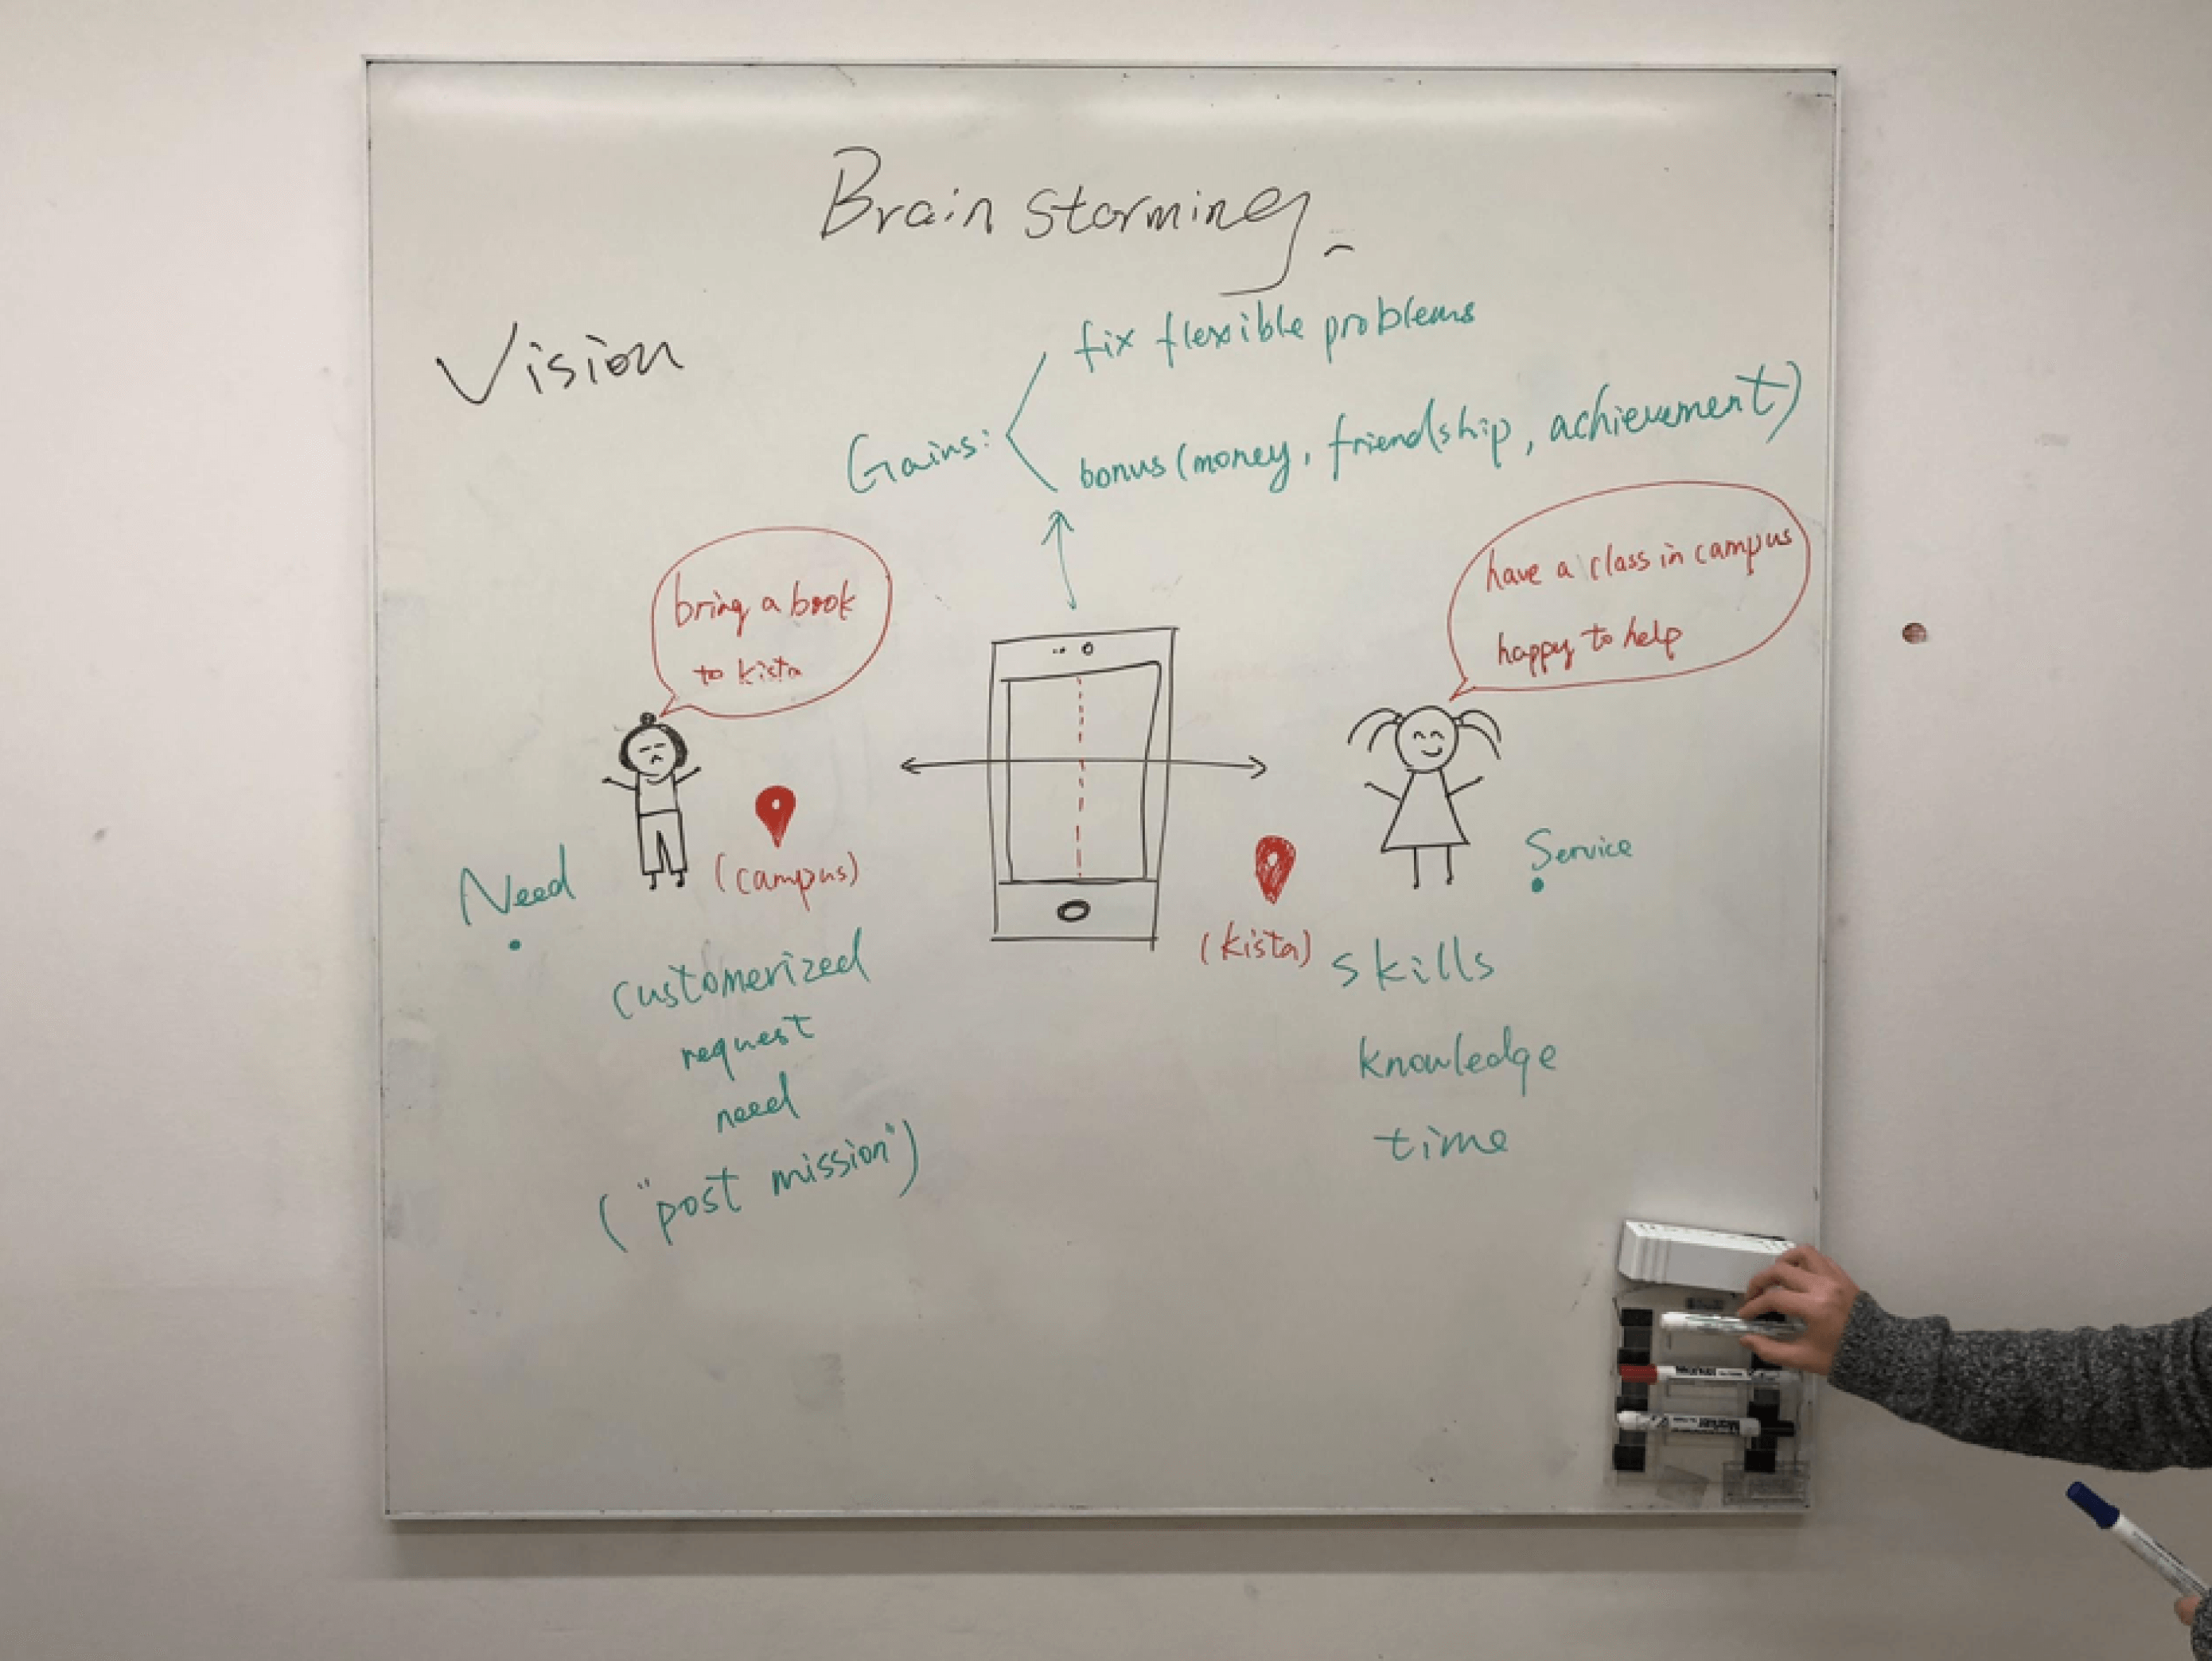 Brain storming
Vision
Gains:
fix flexible problems
bonus (money, friendship, achievement)
bring a book
to kista
have a class in campus
happy to help
Need
(campus)
(kista)
Service
customerized
request
need
("post mission")
skills
knowledge
time
Marker